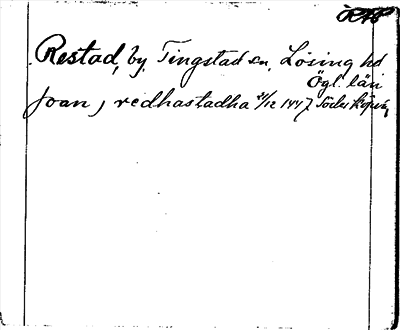 Restad, by. Tingstad sn. Lösing hd
Ögl. län
joan j redhastadha 21/12 1447 Söderköping